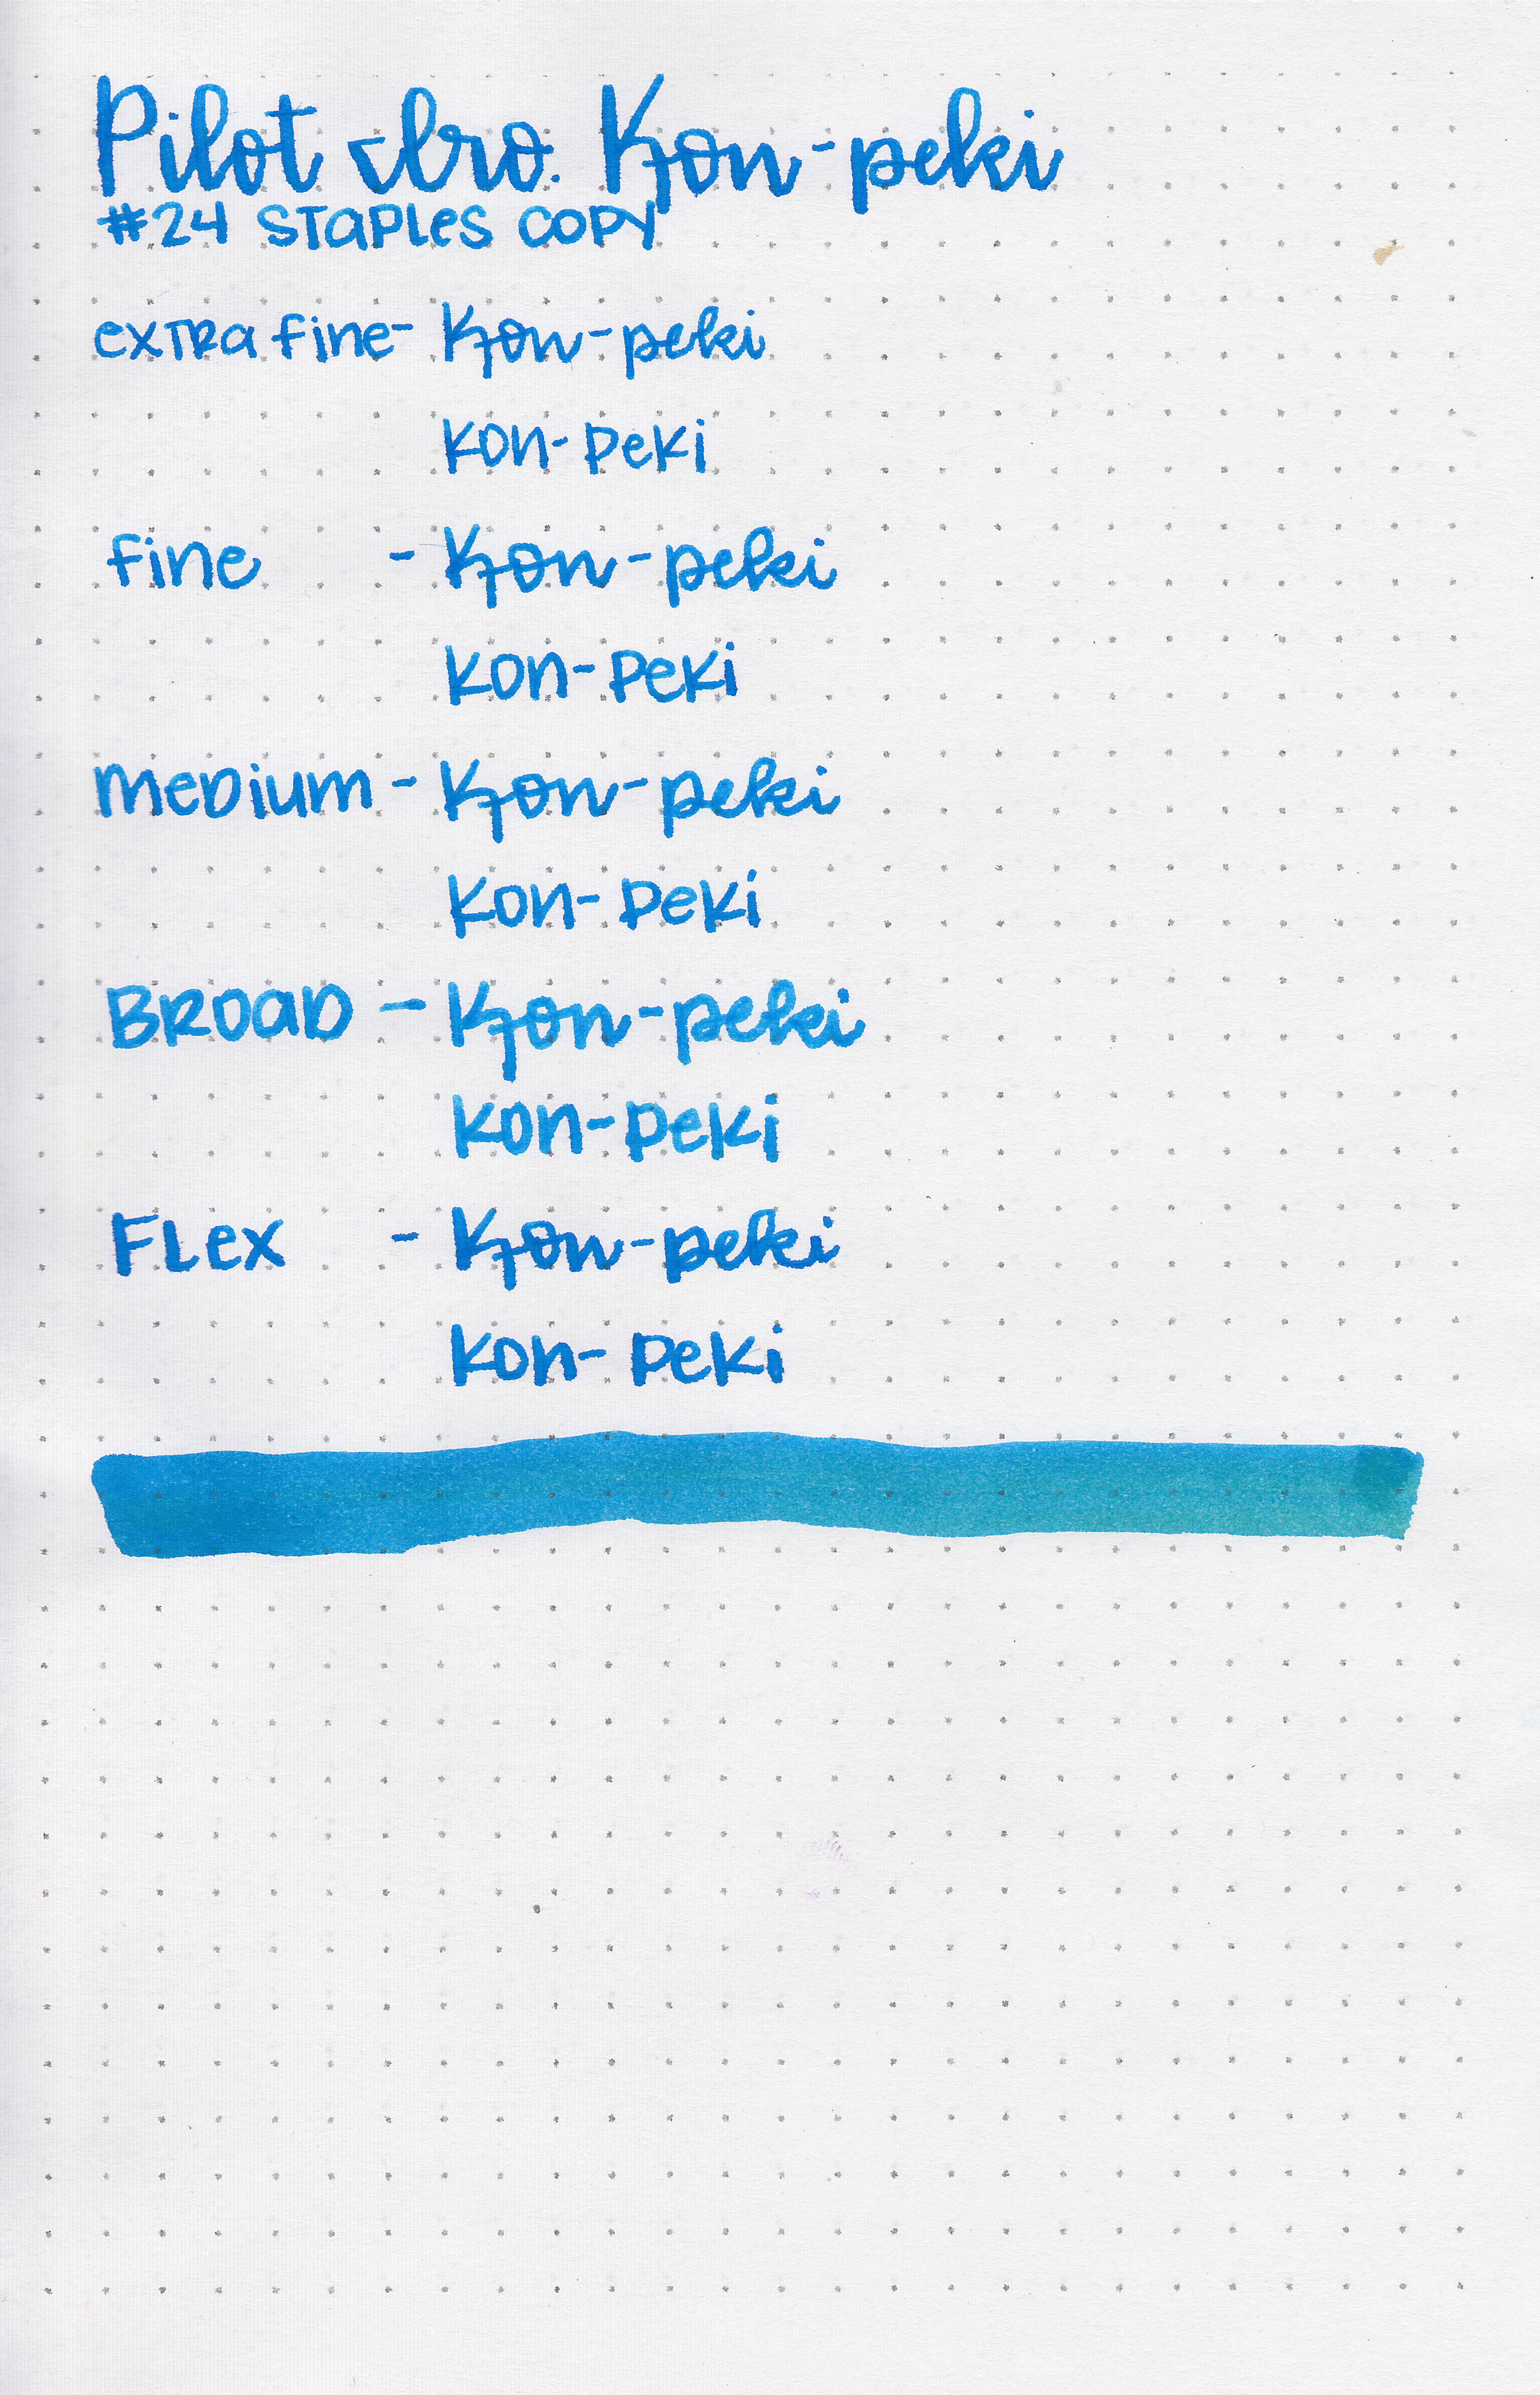 Pilot Iro. Kon-peki
#24 Staples copy
extra fine- Kon-peki
Kon-peki
fine - Kon-peki
Kon-peki
medium - Kon-peki
Kon-peki
Broad - Kon-peki
Kon-peki
Flex - Kon-peki
Kon-peki